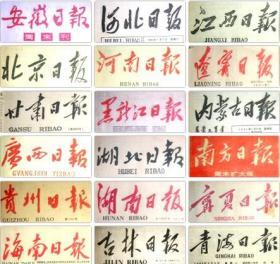 安徽日报
周末刊
河北日報
HEBEI RIBAO
江西日报
JIANGXI RIBAO
北京日報
河南日報
HENAN RIBAO
遼寧日報
LIAONING RIBAO
甘肃日報
GANSU RIBAO
黑龙江日报
内蒙古日报
廣西日報
GVANGJSIH YIZBAU
湖北日報
HUBEI RIBAO
南方日報
周末扩大版
貴州日報
GUIZHOU RIBAO
湖南日報
HUNAN RIBAO
寧夏日報
NINGXIA RIBAO
海南日报
HAINAN RIBAO
吉林日报
JILIN RIBAO
青海日报
QINGHAI RIBAO